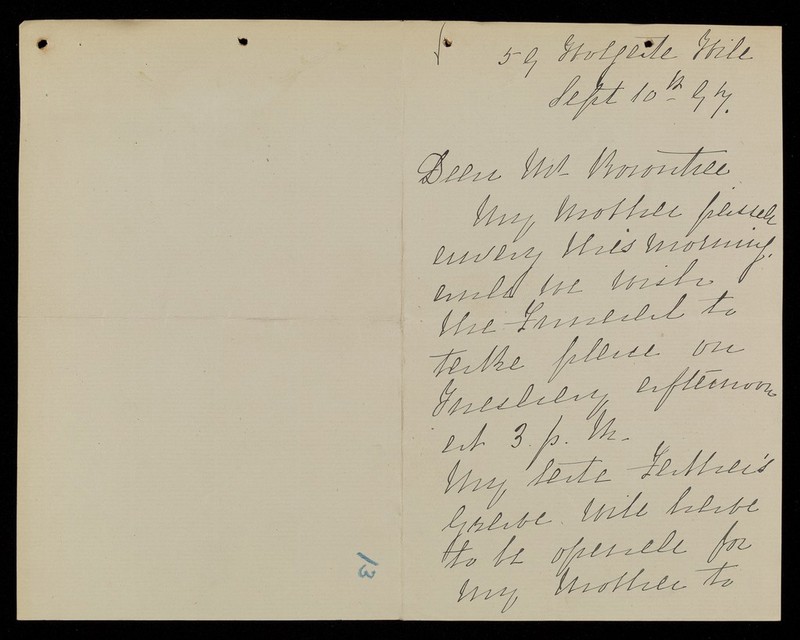 59 Holgate Hill
Sept 10th 97.
Dear Mr Rowntree
My Mother passed
away this morning.
and we wish
the Funeral to
take place on
Tuesday afternoon
at 3 p. M.
My late Father's
Grave will have
to be opened for
my Mother to
13